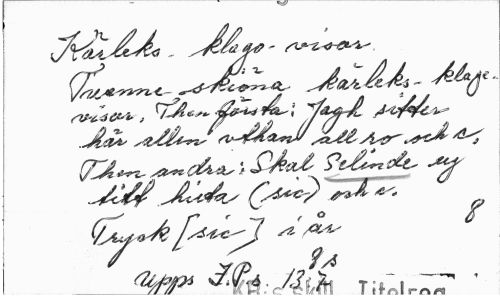 Kärleks- klago-visor.
Tvenne skiöna kärleks- klage-
visor. Then första: Jagh sitter
här allen vthan all ro och c.
Then andra: Skal Selinde ey
titt hieta (sic) och c.
Tryck [sic] i år
8
8 s
Upps F.P.s 13.7
KB:s skill. Titelreg